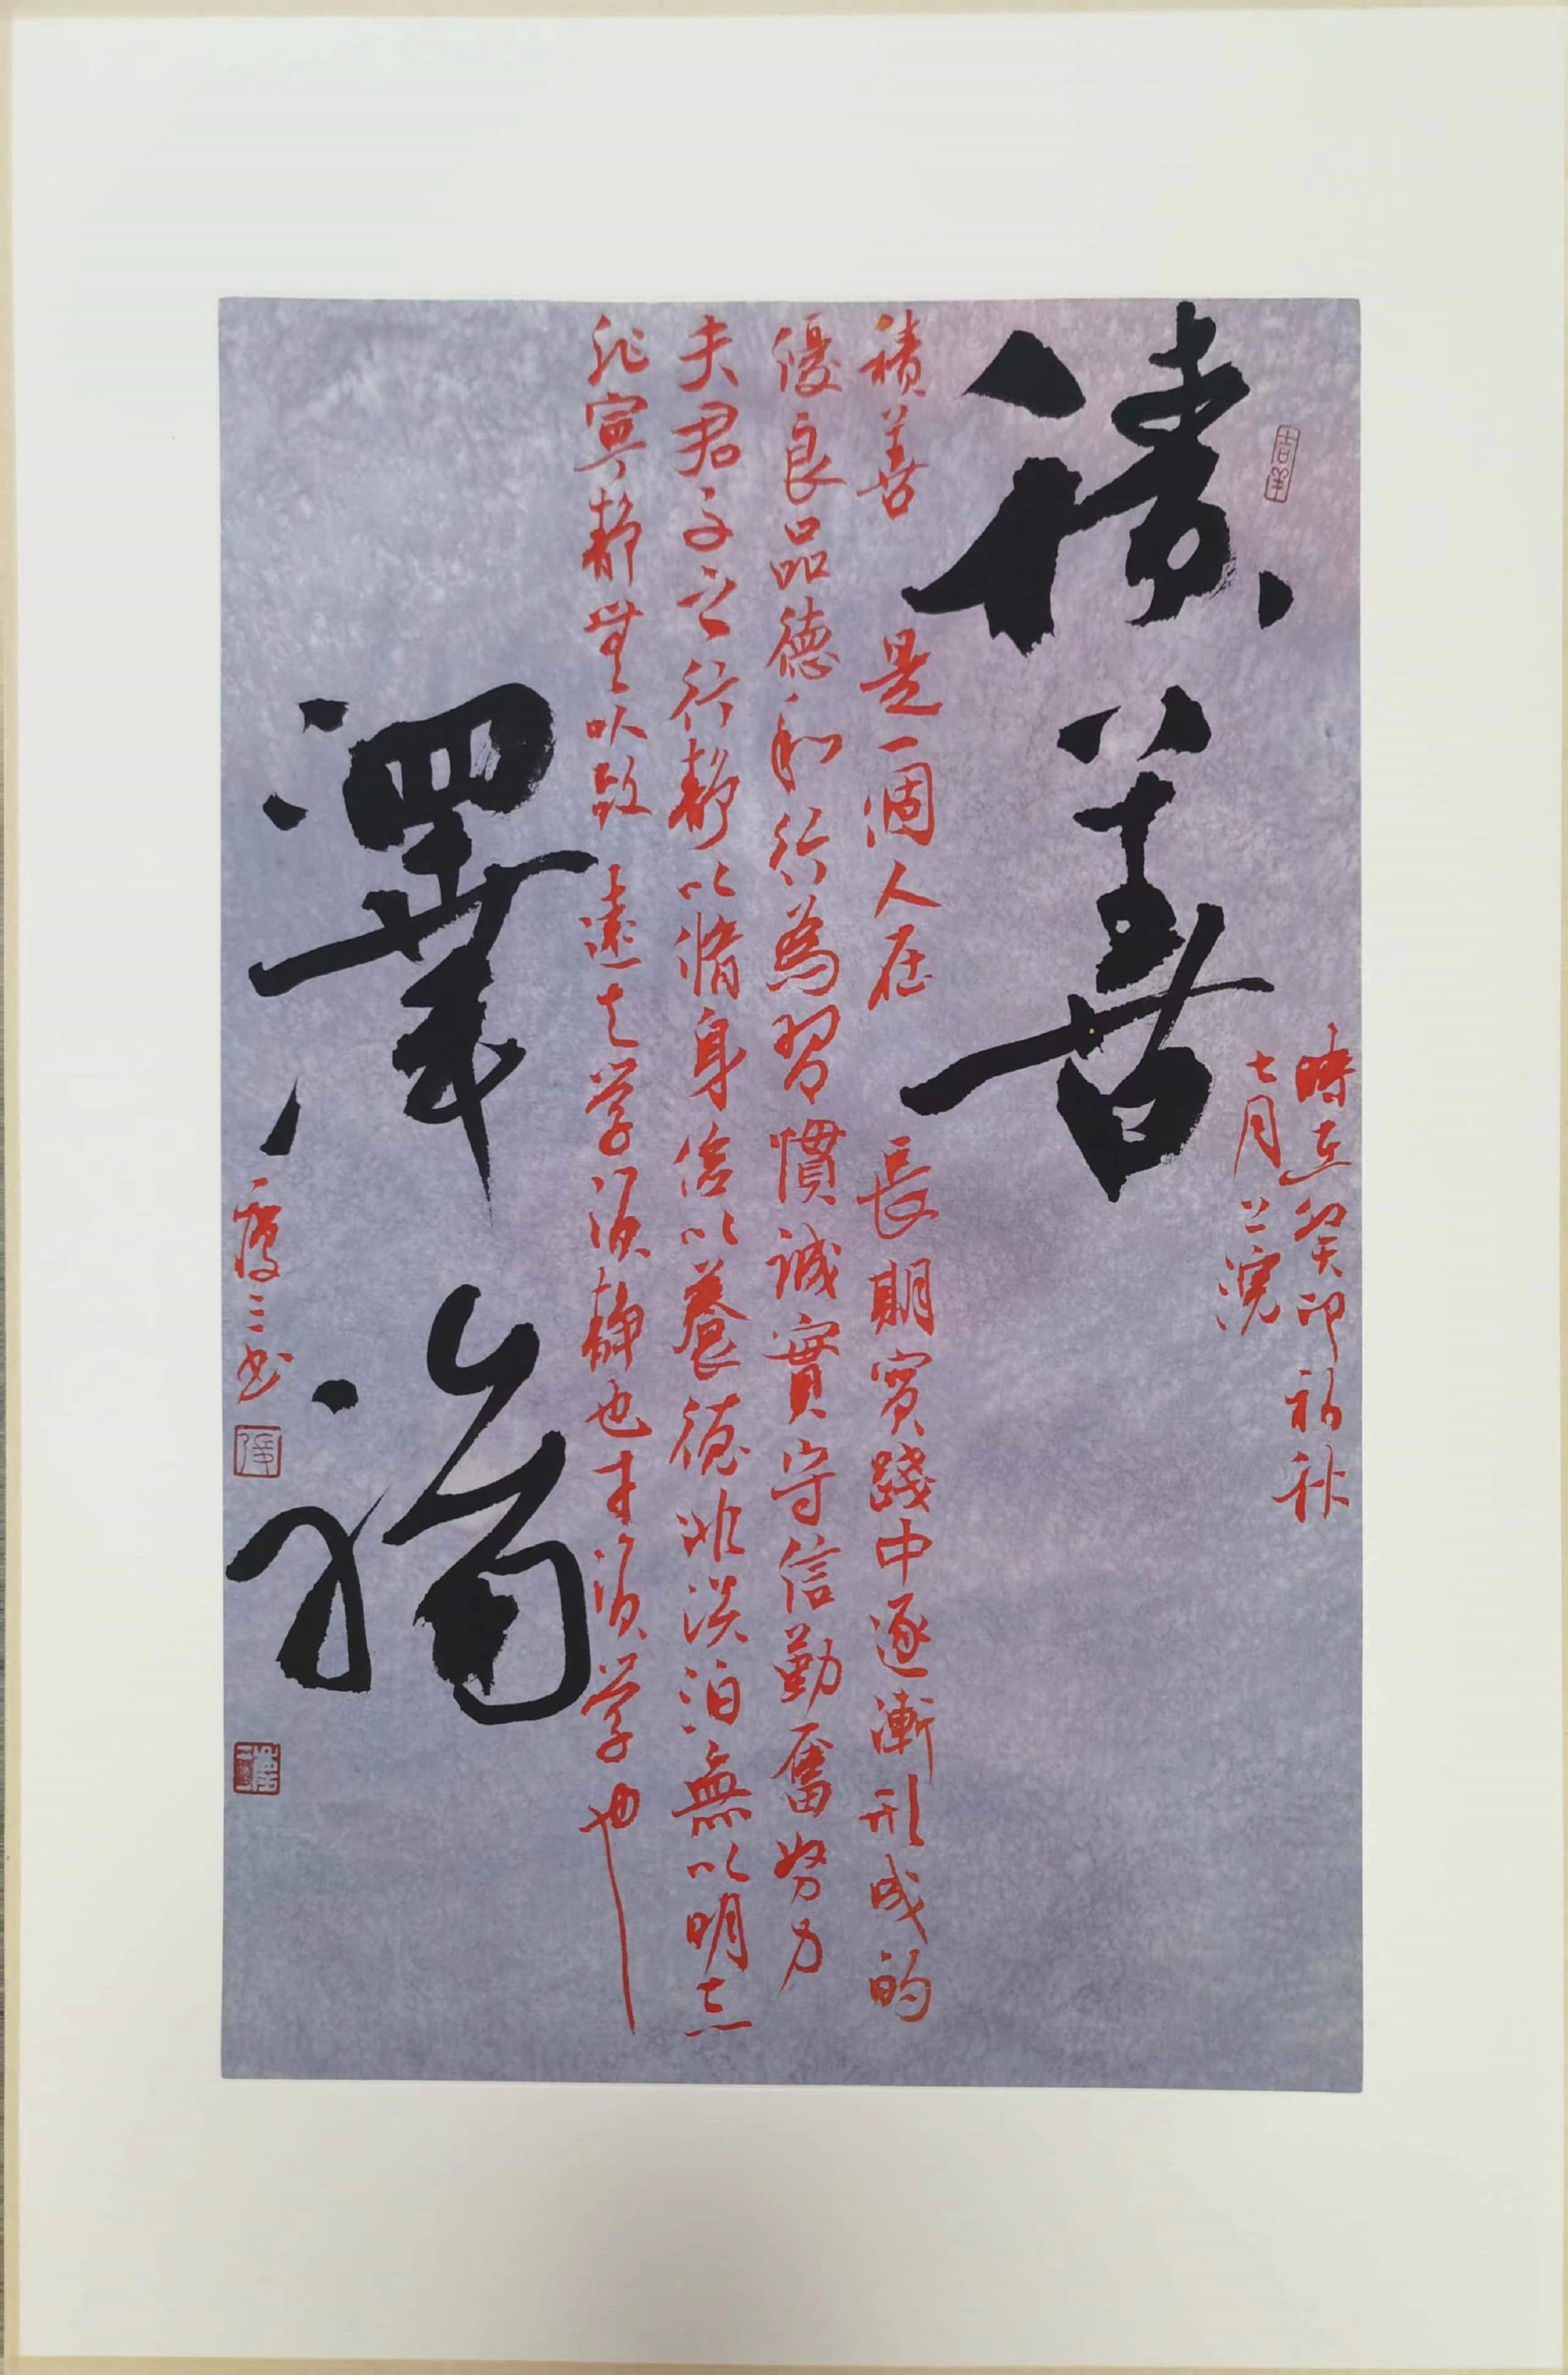 積善
時在癸卯初秋
七月上浣
積善是一個人在長期實踐中逐漸形成的
優良品德和行為習慣誠實守信勤奮努力
夫君子之行靜以脩身俭以養德非淡泊無以明志
非寧靜無以致遠夫学須静也才須学也
澤福
三书